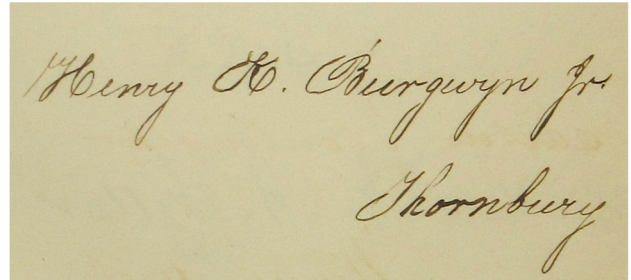 Henry K. Burgwyn Jr.
Thornbury